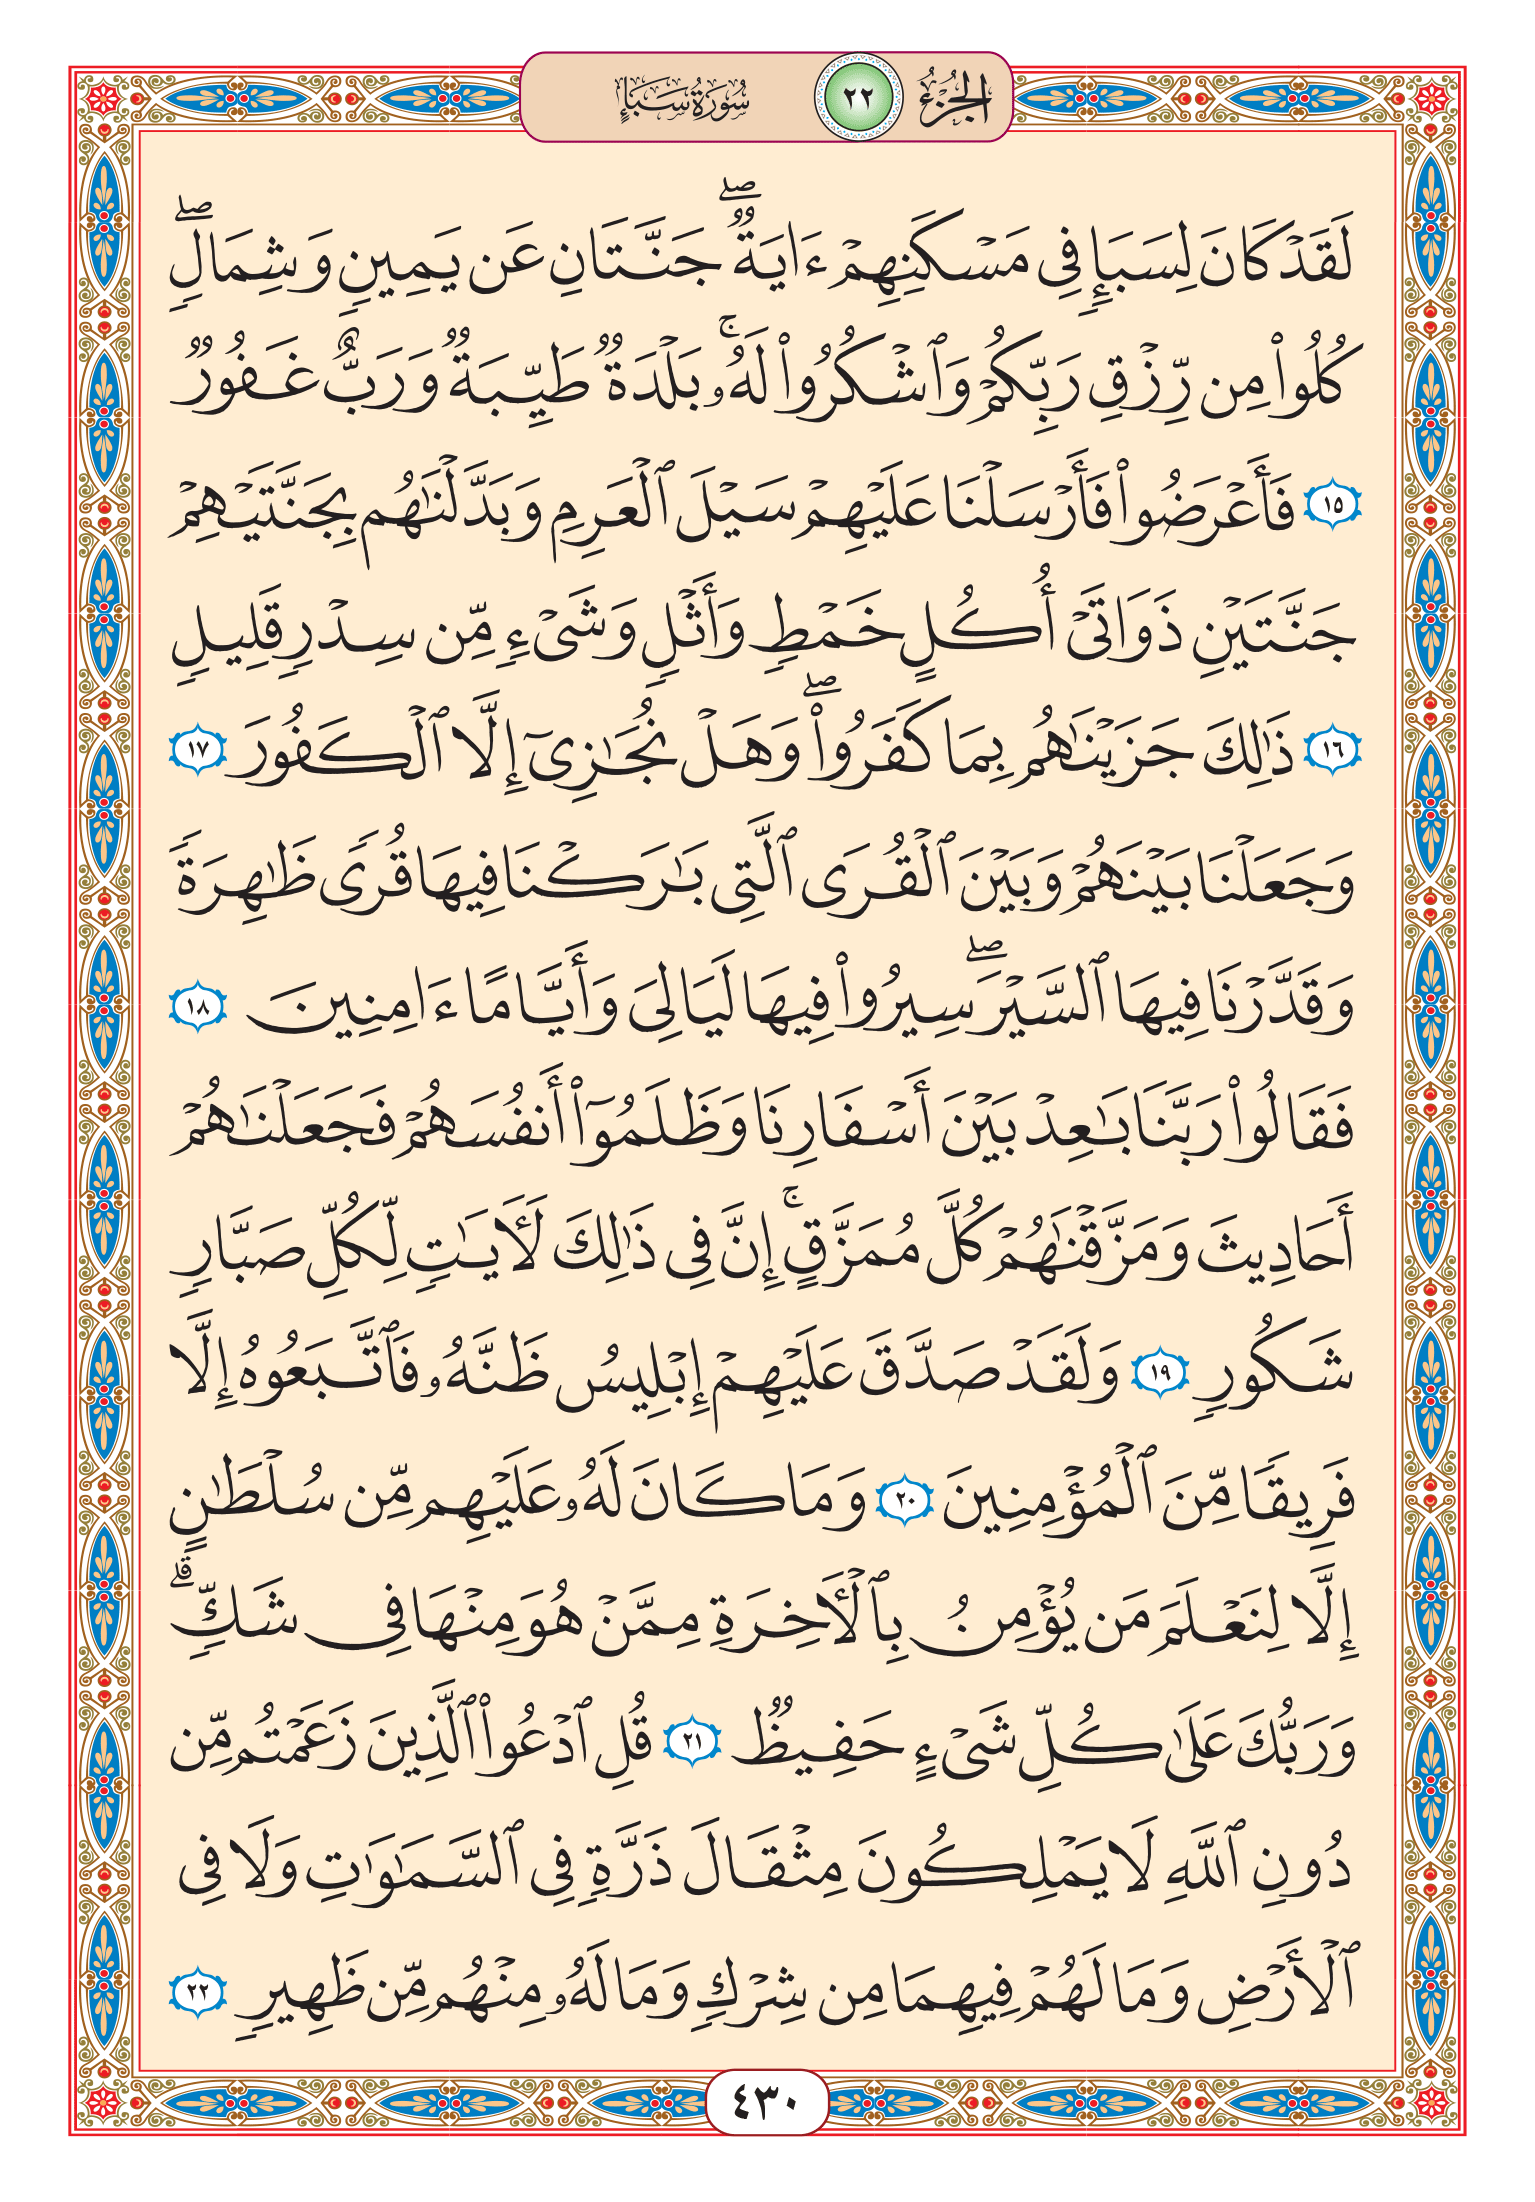 الجزء ٢٢ سورة سبإ
لَقَدْ كَانَ لِسَبَإٖ فِي مَسْكَنِهِمْ ءَايَةٞۖ جَنَّتَانِ عَن يَمِينٖ وَشِمَالٖۖ
كُلُواْ مِن رِّزْقِ رَبِّكُمْ وَٱشْكُرُواْ لَهُۥۚ بَلْدَةٞ طَيِّبَةٞ وَرَبٌّ غَفُورٞ
١٥ فَأَعْرَضُواْ فَأَرْسَلْنَا عَلَيْهِمْ سَيْلَ ٱلْعَرِمِ وَبَدَّلْنَٰهُم بِجَنَّتَيْهِمْ
جَنَّتَيْنِ ذَوَاتَيْ أُكُلٍ خَمْطٖ وَأَثْلٖ وَشَيْءٖ مِّن سِدْرٖ قَلِيلٖ
١٦ ذَٰلِكَ جَزَيْنَٰهُم بِمَا كَفَرُواْۖ وَهَلْ نُجَٰزِيٓ إِلَّا ٱلْكَفُورَ ١٧
وَجَعَلْنَا بَيْنَهُمْ وَبَيْنَ ٱلْقُرَى ٱلَّتِي بَٰرَكْنَا فِيهَا قُرٗى ظَٰهِرَةٗ
وَقَدَّرْنَا فِيهَا ٱلسَّيْرَۖ سِيرُواْ فِيهَا لَيَالِيَ وَأَيَّامًا ءَامِنِينَ ١٨
فَقَالُواْ رَبَّنَا بَٰعِدْ بَيْنَ أَسْفَارِنَا وَظَلَمُوٓاْ أَنفُسَهُمْ فَجَعَلْنَٰهُمْ
أَحَادِيثَ وَمَزَّقْنَٰهُمْ كُلَّ مُمَزَّقٍۚ إِنَّ فِي ذَٰلِكَ لَأٓيَٰتٖ لِّكُلِّ صَبَّارٖ
شَكُورٖ ١٩ وَلَقَدْ صَدَّقَ عَلَيْهِمْ إِبْلِيسُ ظَنَّهُۥ فَٱتَّبَعُوهُ إِلَّا
فَرِيقٗا مِّنَ ٱلْمُؤْمِنِينَ ٢٠ وَمَا كَانَ لَهُۥ عَلَيْهِم مِّن سُلْطَٰنٍ
إِلَّا لِنَعْلَمَ مَن يُؤْمِنُ بِٱلْأٓخِرَةِ مِمَّنْ هُوَ مِنْهَا فِي شَكّٖۗ
وَرَبُّكَ عَلَىٰ كُلِّ شَيْءٍ حَفِيظٞ ٢١ قُلِ ٱدْعُواْ ٱلَّذِينَ زَعَمْتُم مِّن
دُونِ ٱللَّهِ لَا يَمْلِكُونَ مِثْقَالَ ذَرَّةٖ فِي ٱلسَّمَٰوَٰتِ وَلَا فِي
ٱلْأَرْضِ وَمَا لَهُمْ فِيهِمَا مِن شِرْكٖ وَمَا لَهُۥ مِنْهُم مِّن ظَهِيرٖ ٢٢
٤٣٠